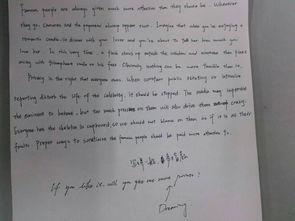 Famous people are always given much more attention than they should be. Wherever
they go, Cameras and the paparazzi always appear soon. Imagine that when you're enjoying a
romantic candle-lit dinner with your lover and you're about to tell her how much you
love her. In this very time, a flash shoots up outside the window and someone
away with triumphant smile on his face. Obviously nothing can be more terrible than it.
Privacy is the right that everyone owns. When constant public scrutiny or intensive
reporting disturb the life of the celebrity, it should be stopped. The media may supervise
the eminent to behave, but too much pressure on them will also drive them crazy.
Everyone has the skeleton in cupboard, so we should not blame on them as if it is all their
faults. Proper ways to scrutinize the famous people should be paid more attention to.
If you like it, will you give me more primer?
Dreaming